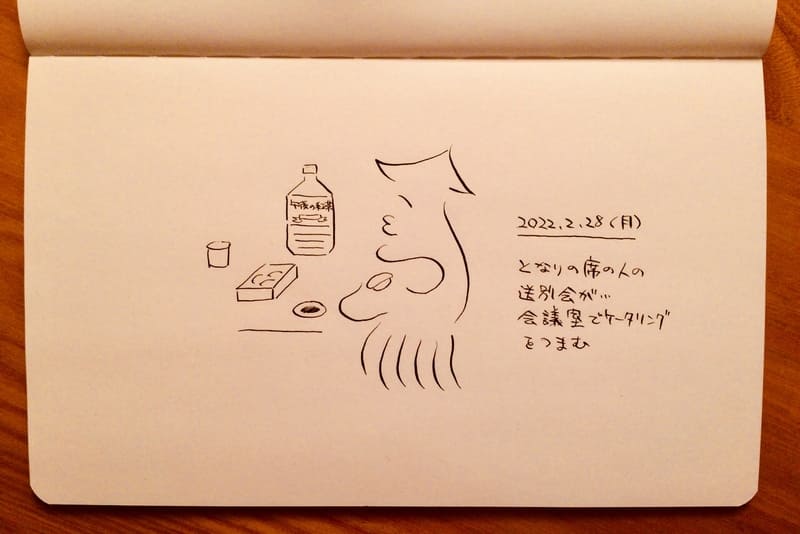 午後の紅茶
2022.2.28(月)
となりの席の人の
送別会が…
会議室でケータリング
をつまむ